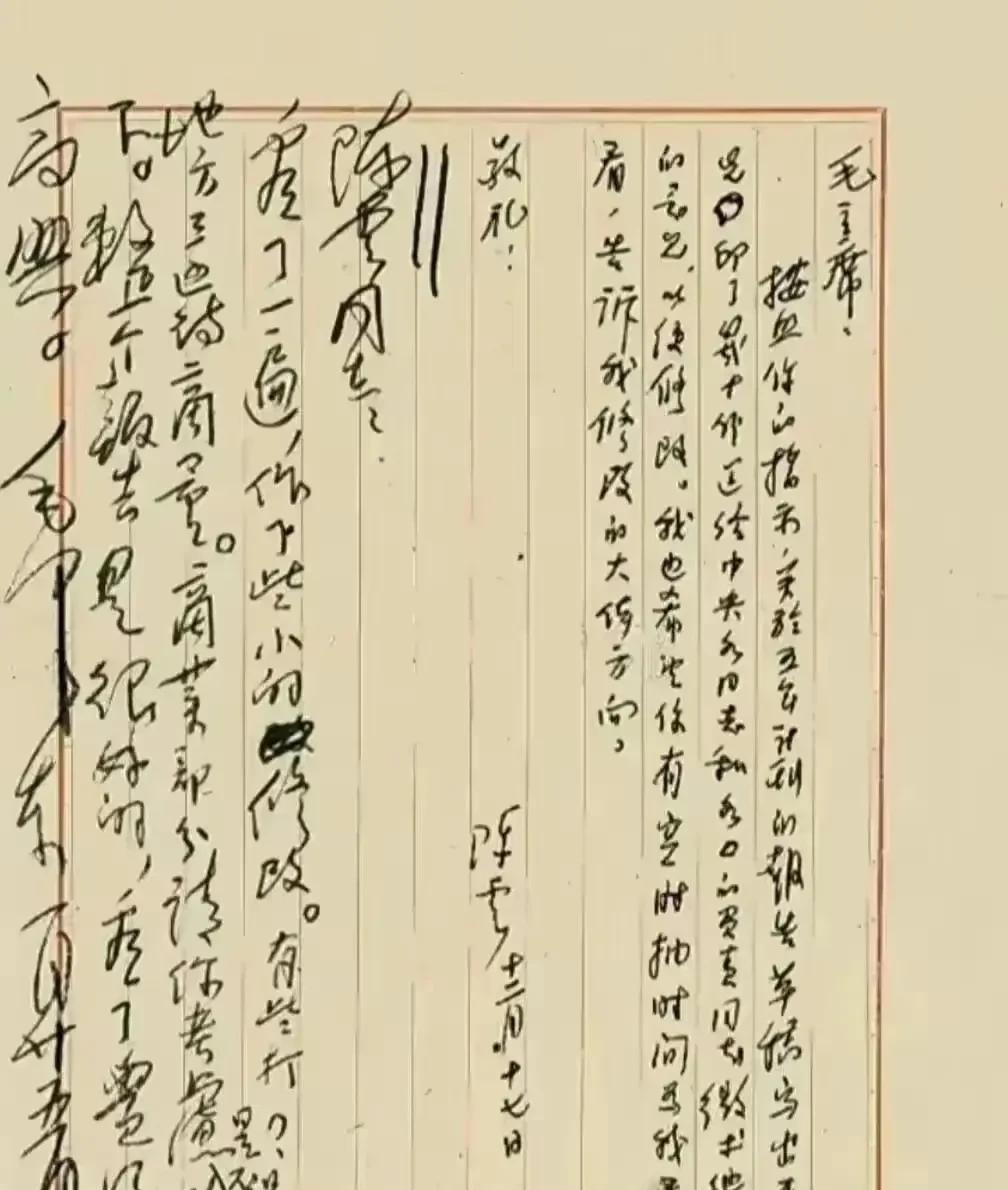 毛主席：
按照你的指示，关于五年计划的报告草稿写出
先印了几十份送给中央各同志和各口的负责同志征求他
的意见，以便修改。我也希望你有空时抽时间
看，告诉我修改的大体方向。
敬礼！
陈云 十二月十七日
陈云同志：
看了一遍，作了些小的修改。有些打？
地方还待商量。商业部分请你考虑
下。整个报告是很好的，看了觉得
高兴。毛泽东 十二月廿五日